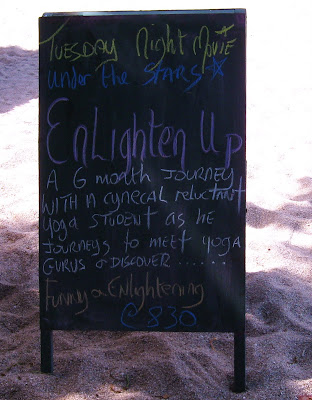 Tuesday Night Movie
under the STARS
EnLighten Up
A 6 month JOURNEY
WITH A cynecal reluctant
Yoga STUDENT as he
Journeys to meet yoga
GURUS & DISCOVER ......
Funny & ENlightening
@ 830